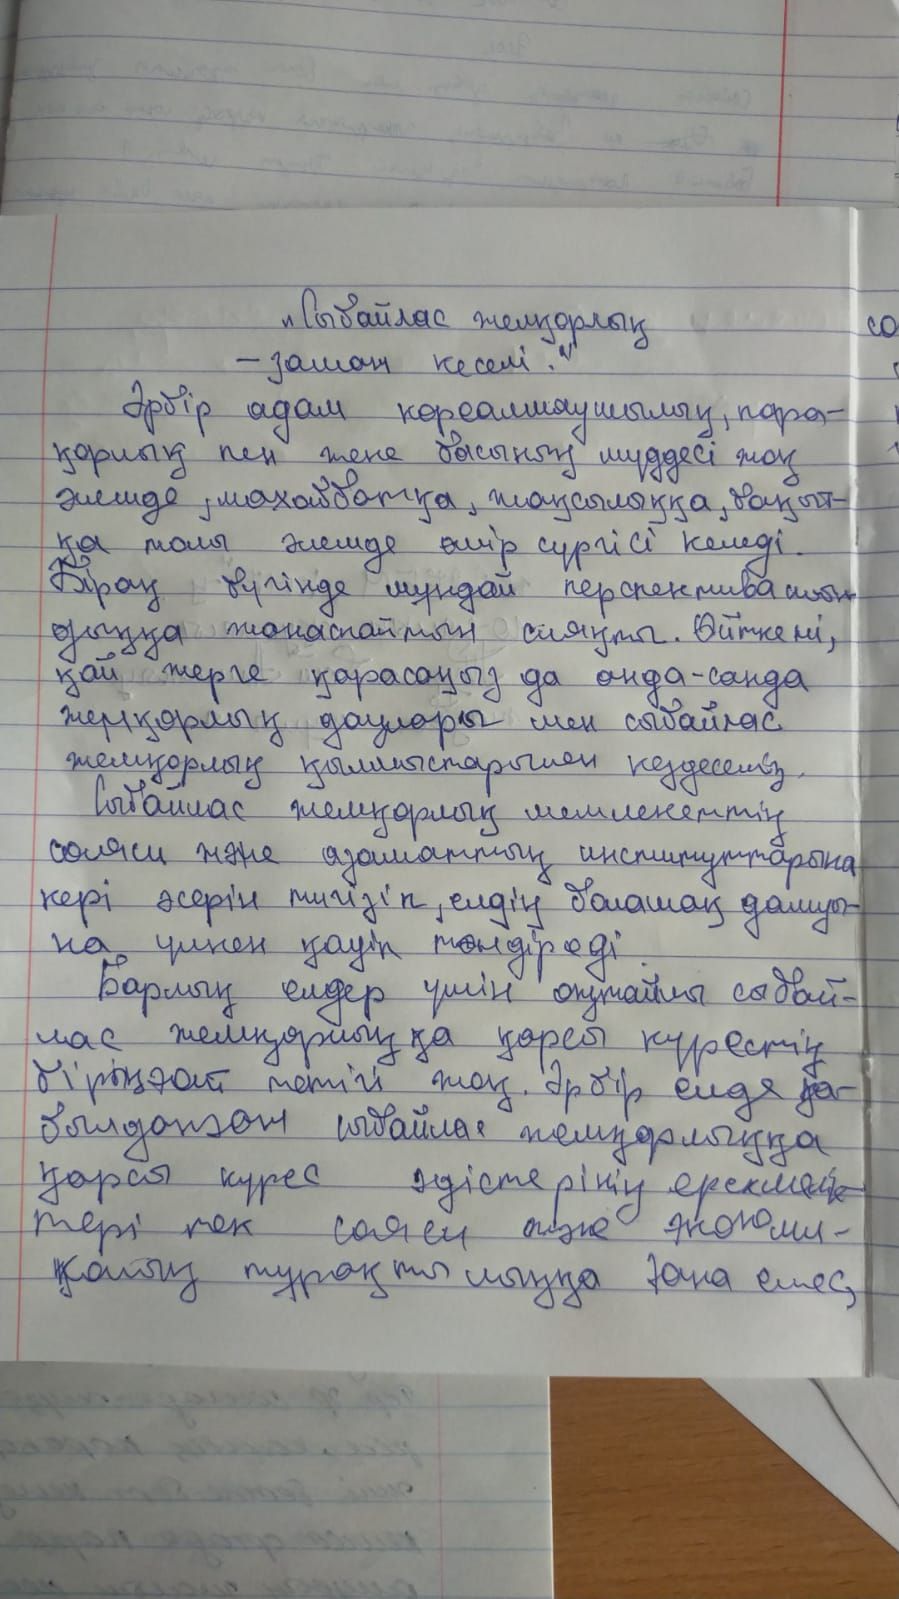 „Сыбайлас жемқорлық
– заман кеселі."
Әрбір адам көреалмаушылық, пара-
қорлық пен жеке басының мүддесі жоқ
әлемде, махаббатқа, жақсылыққа, бақыт-
қа толы әлемде өмір сүргісі келеді.
Бірақ бүгінде мұндай перспектива шын-
дыққа жанаспайтын сияқты. Өйткені,
қай жерге қарасаңыз да анда-санда
жемқорлық даулары мен сыбайлас
жемқорлық қылмыстарымен кездесеміз.
Сыбайлас жемқорлық мемлекеттің
саяси және азаматтық институттарына
кері әсерін тигізіп, елдің болашақ дамуы-
на үлкен қауіп төндіреді.
Барлық елдер үшін оңтайлы сыбай-
лас жемқорлыққа қарсы күрестің
бірыңғай тетігі жоқ. Әрбір елде қа-
былданған сыбайлас жемқорлыққа
қарсы күрес әдістерінің ерекшелік-
тері тек саяси және экономи-
калық тұрақтылыққа ғана емес,
со